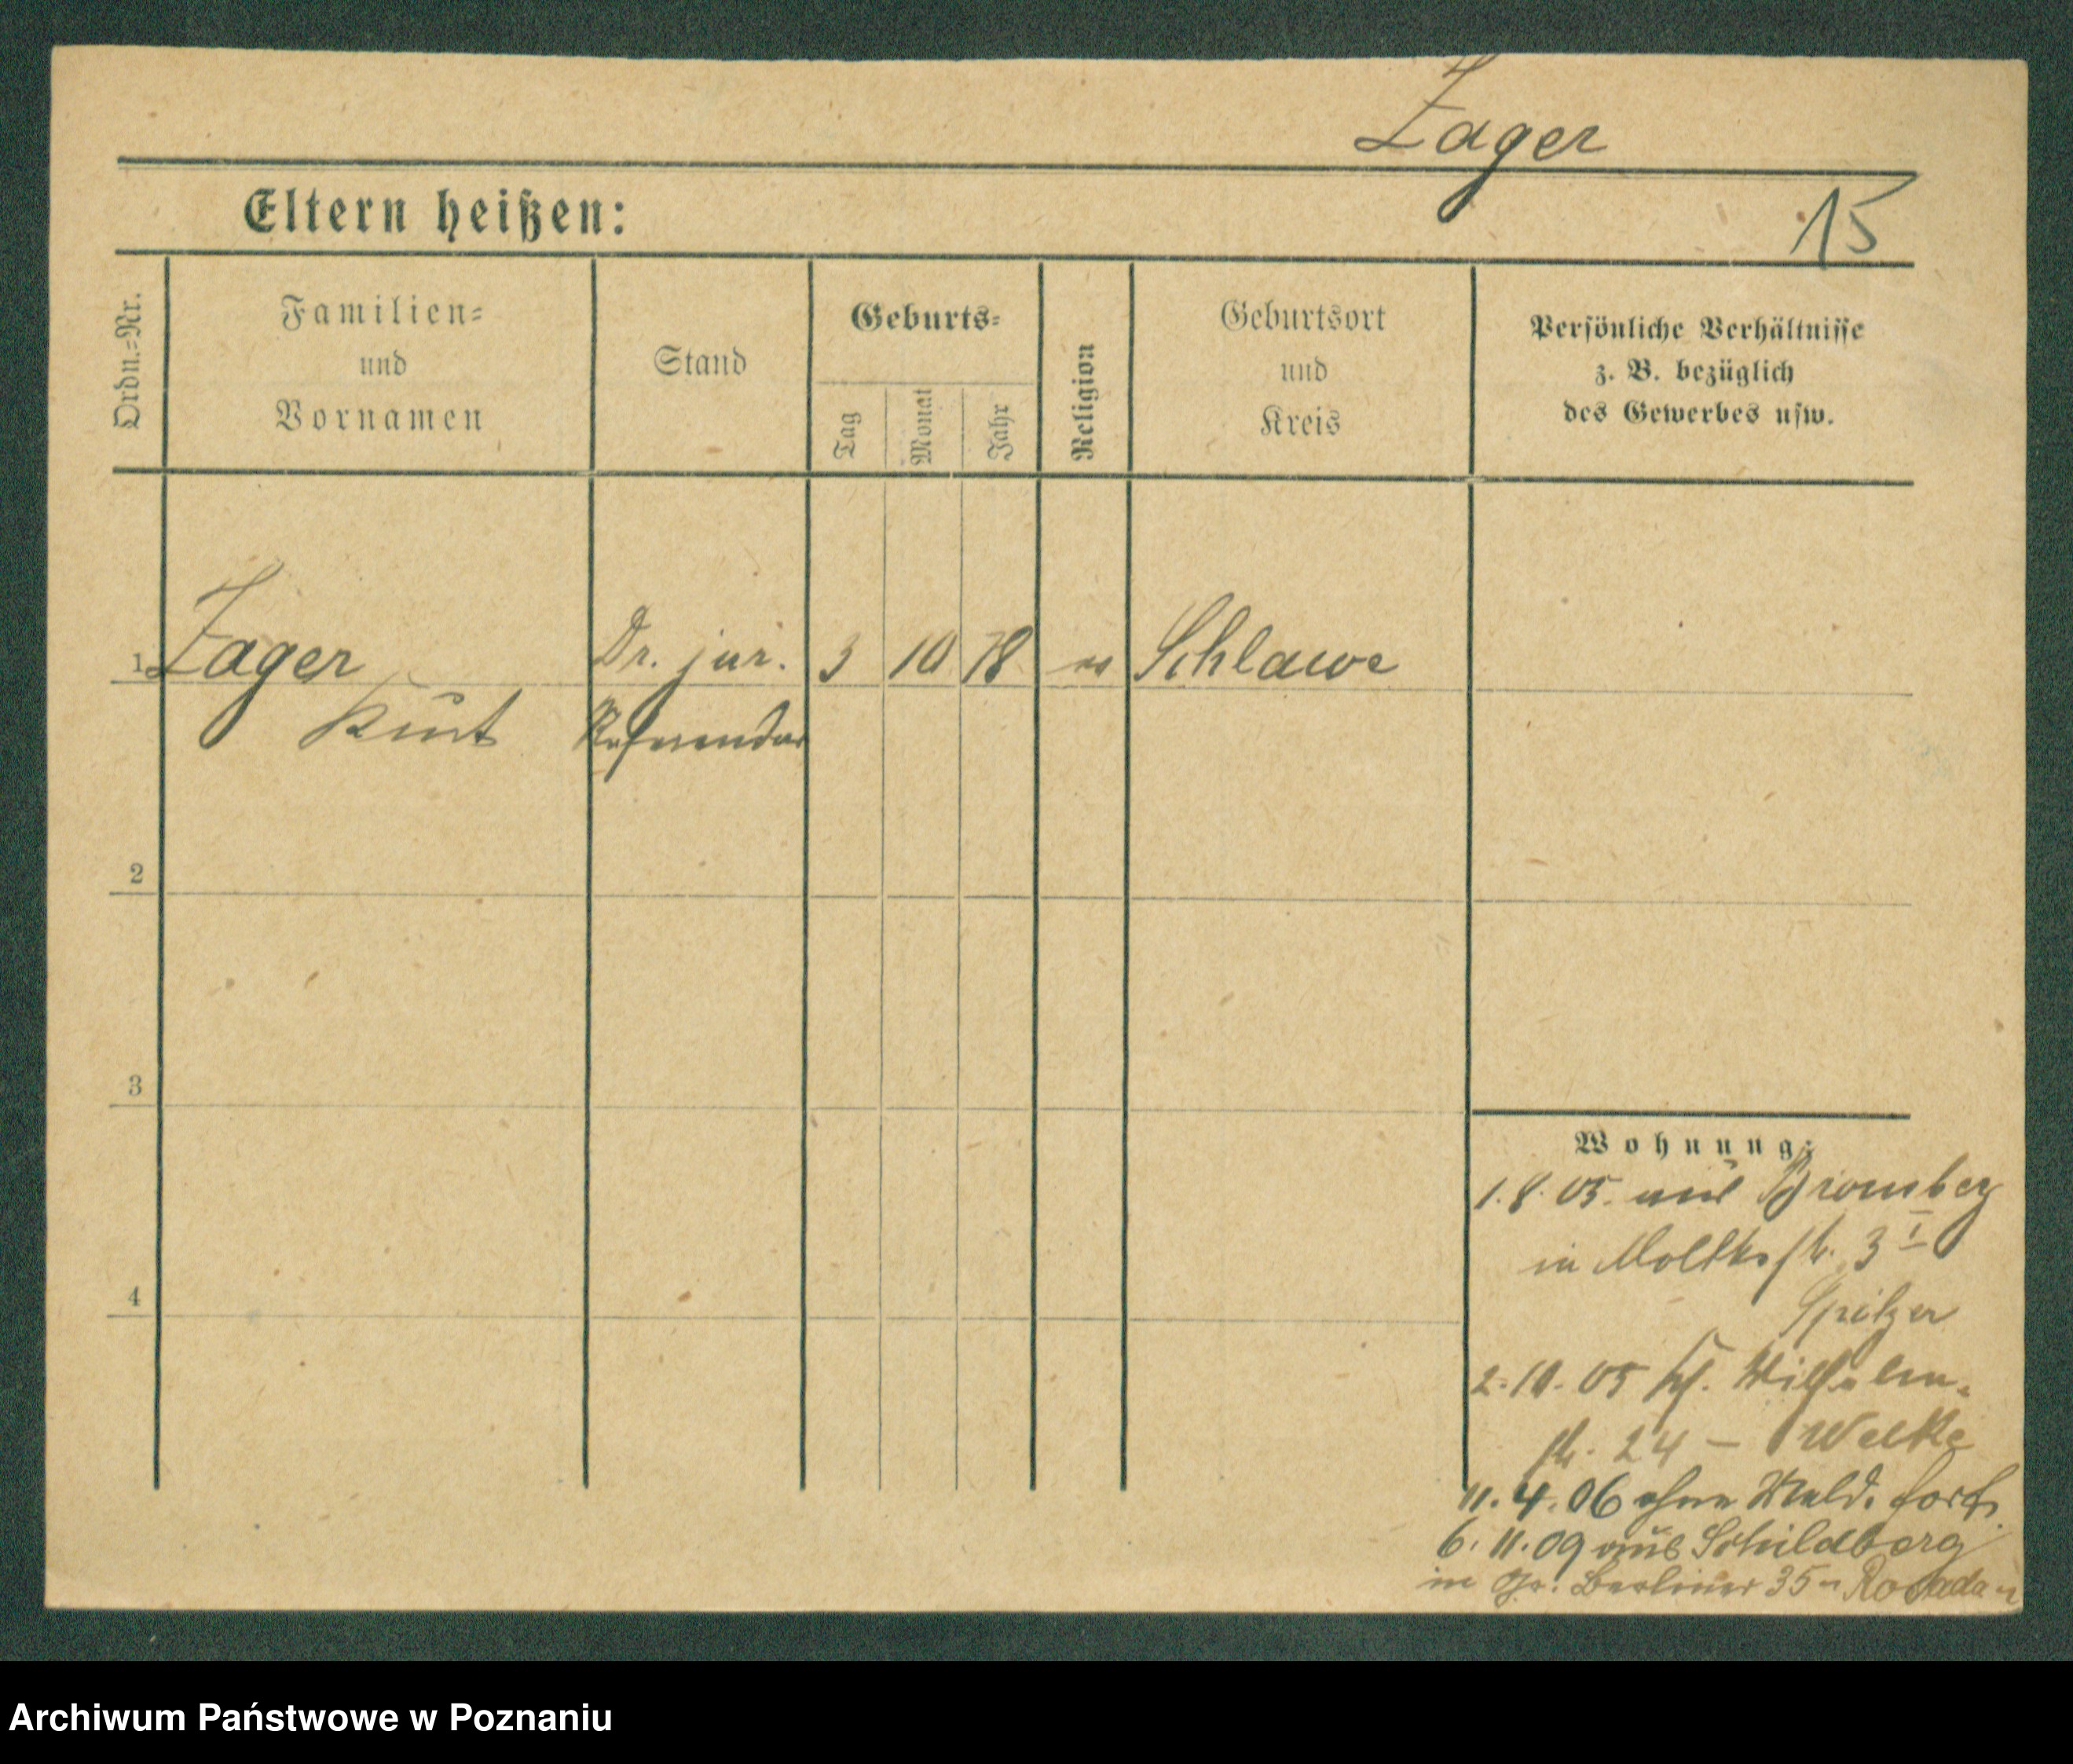 Zager
Eltern heißen:
15
Ordn.=Nr.
Familien=
und
Vornamen
Stand
Geburts=
Tag
Monat
Jahr
Religion
Geburtsort
und
Kreis
Persönliche Verhältnisse
z. B. bezüglich
des Gewerbes usw.
1 Zager Dr. jur. 3 10 78 Schlawe
Kurt Referendar
2
3
4
Wohnung:
1.8.05. aus Bromberg
in Moltkestr. 3 I
Spitzer
2.10.05 hf. Wilhelm-
str. 24 – Welke
11.4.06 ohne Meld. fort.
6.11.09 aus Schildberg
in Gr. Berliner 35
Archiwum Państwowe w Poznaniu